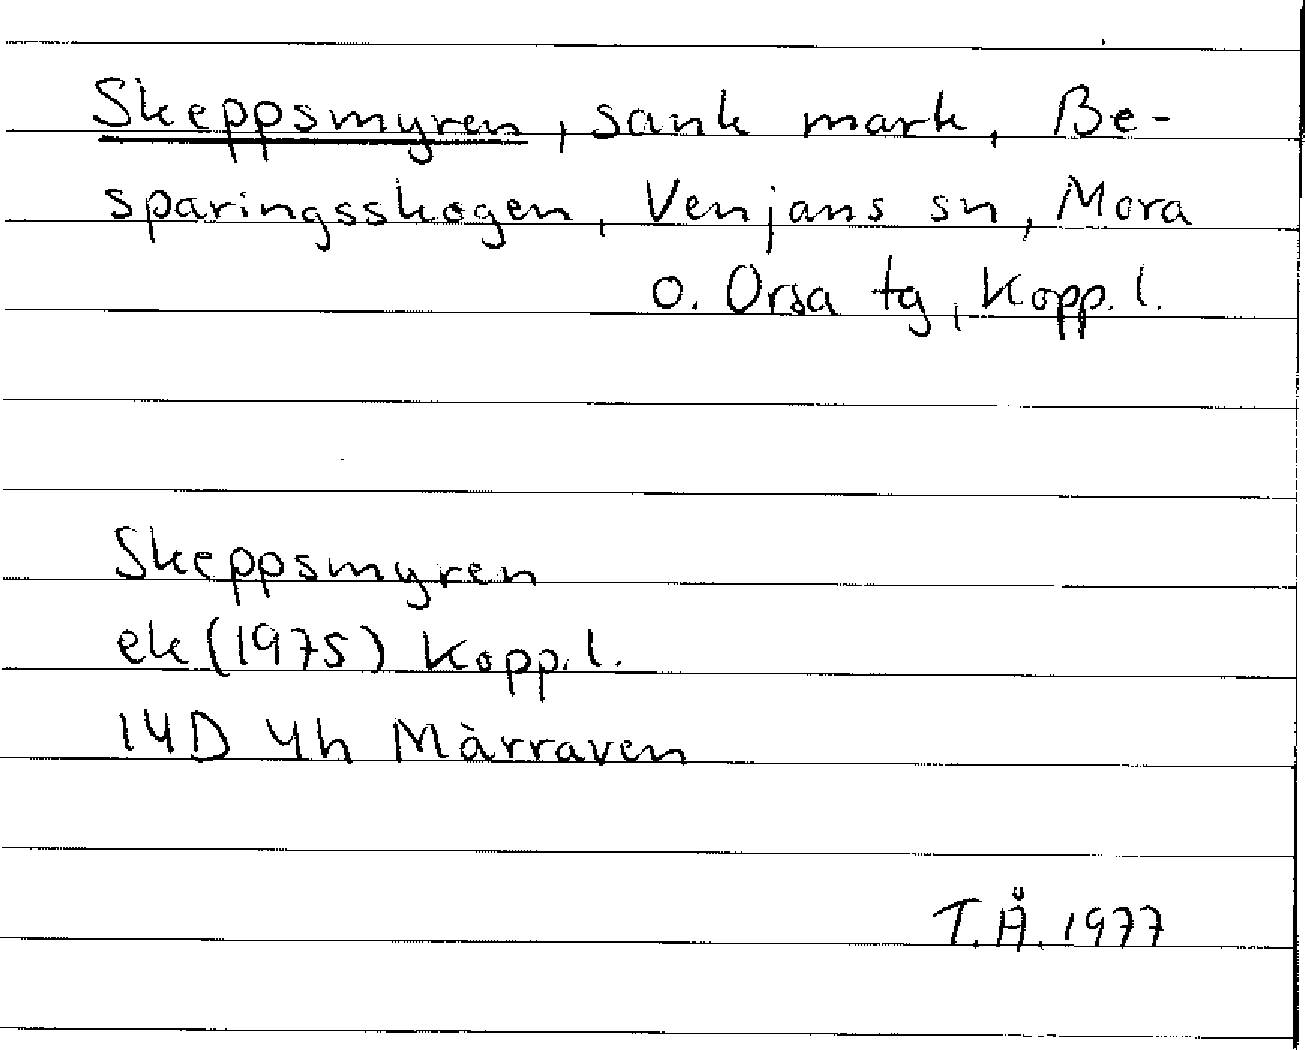 Skeppsmyren, sank mark, Be-
sparingsskogen, Venjans sn, Mora
o. Orsa tg, Kopp. l.
Skeppsmyren
ek (1975) Kopp. l.
14D 4h Màrraven
T.Å. 1977